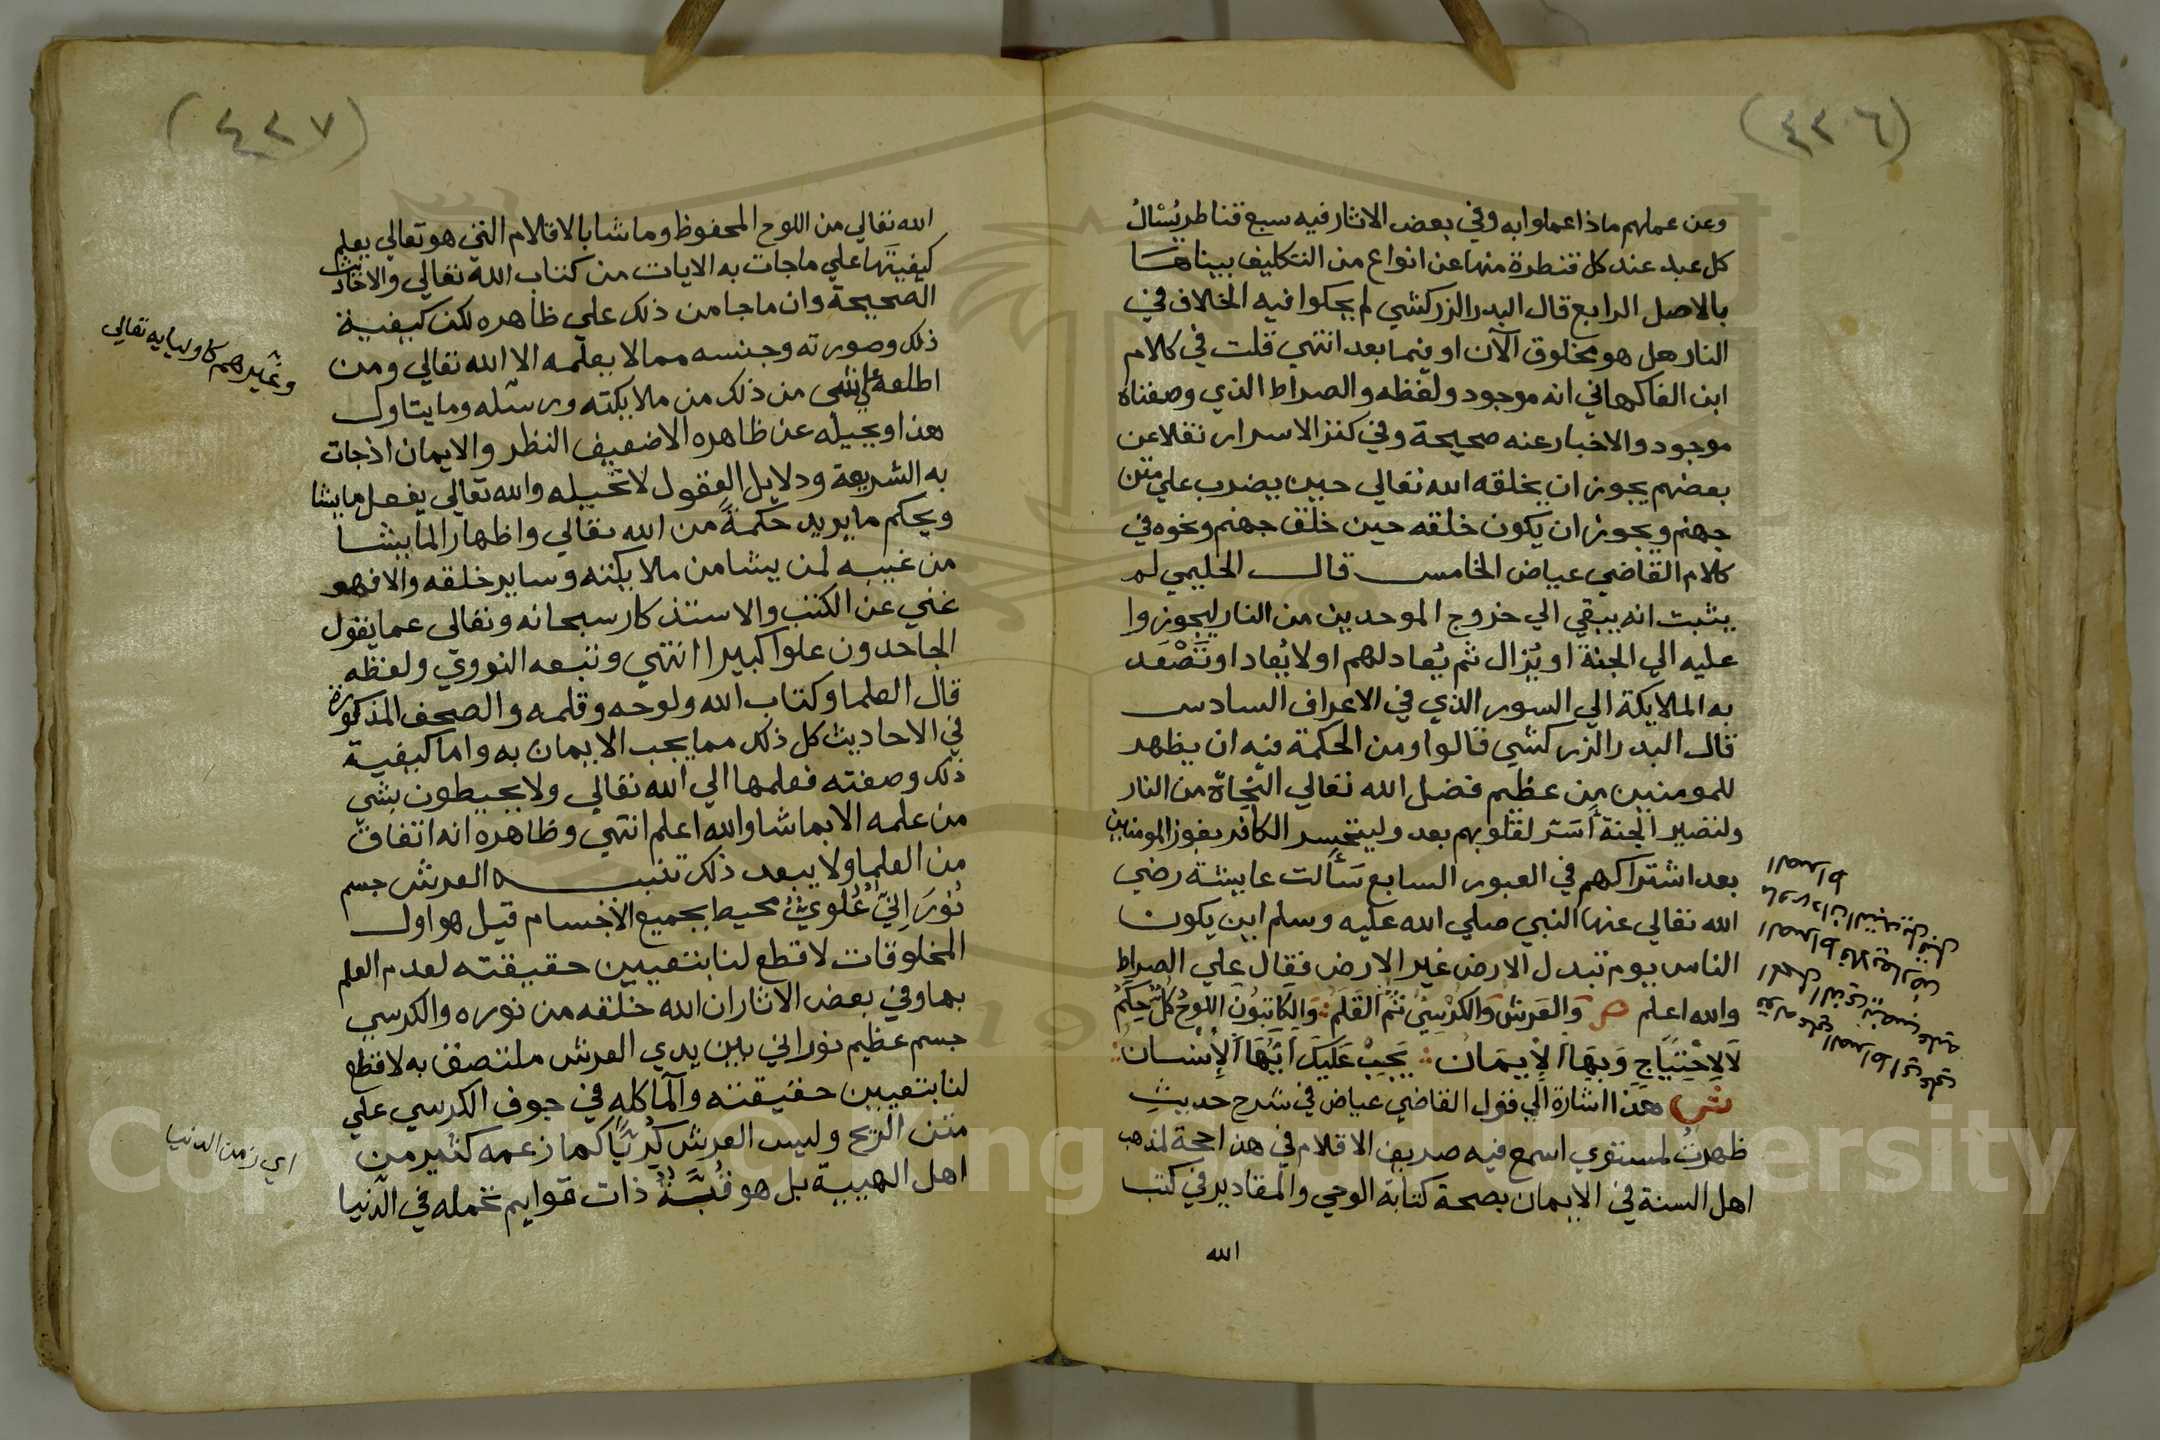 (٤٣٦)
وعن عملهم ماذا عملوا به وفي بعض الاثار فيه سبع قناطر يُسْالُ
كل عبد عند كل قنطرة منها عن انواع من التكليف بيناها
بالاصل الرابع قال البدر الزركشي لم يحكوا فيه الخلاف في
النار هل هو مخلوق الآن او فيما بعد انتهي قلت في كلام
ابن الفاكهاني انه موجود ولفظه والصراط الذي وصفناه
موجود والاخبار عنه صحيحة وفي كنز الاسرار نقلا عن
بعضهم يجوز ان يخلقه الله تعالي حين يضرب علي متن
جهنم ويجوز ان يكون خلقه حين خلق جهنم ونحوه في
كلام القاضي عياض الخامس قال الحليمي لم
يثبت انه يبقي الي خروج الموحدين من النار ليجوزوا
عليه الي الجنة او يُزال ثم يُعاد لهم او لا يُعاد او تَصْعَد
به الملايكة الي السور الذي في الاعراف السادس
قال البدر الزركشي قالوا ومن الحكمة فيه ان يظهر
للمومنين من عظيم فضل الله تعالي النجاة من النار
ولتصير الجنة أسَرّ لقلوبهم بعد وليتحسر الكافر بفوز المومنين
بعد اشتراكهم في العبور السابع سَألت عايشة رضي
الله تعالي عنها النبي صلي الله عليه وسلم اين يكون
الناس يوم تبدل الارض غير الارض فقال علي الصراط
والله اعلم ص وَالعَرشُ وَالكُرْسِيُّ ثُمَّ القَلَمُ وَالكَاتِبُونَ اللوحُ كُلٌّ حِكَمُ
لَا لِاحْتِيَاجٍ وَبِهَا الإِيمَان يَجِبُ عَلَيْكَ أيُّهَا الإِنْسان
ش هَذا اشارة الي قول القاضي عياض في شرح حديث
ظهرتُ لمستوي اسمع فيه صريف الاقلام في هذا حجة لمذهب
اهل السنة في الايمان بصحة كتابة الوحي والمقادير في كتب
الله
(٤٣٧)
الله تعالي من اللوح المحفوظ وما شا بالاقلام التي هو تعالي يعلم
كيفيتها علي ما جات به الايات من كتاب الله تعالي والاحاديث
الصحيحة وان ما جا من ذلك علي ظاهره لكن كيفية
ذلك وصورته وجنسه مما لا يعلمه الا الله تعالي ومن
اطلعه علي شي من ذلك من ملايكته ورسله وما يتاول
هذا ويحيله عن ظاهره الا ضعيف النظر والايمان اذ جات
به الشريعة ودلايل العقول لا تحيله والله تعالي يفعل ما يشا
ويحكم ما يريد حكمةً من الله تعالي واظهارا لما يشا
من غيبه لمن يشا من ملايكته وساير خلقه والا فهو
غني عن الكتب والاستذكار سبحانه وتعالي عما يقول
الجاحدون علوا كبيرا انتهي وتبعه النووي ولفظه
قال العلما وكتاب الله ولوحه وقلمه والصحف المذكورة
في الاحاديث كل ذلك مما يجب الايمان به واما كيفية
ذلك وصفته فعلمها الي الله تعالي ولا يحيطون بشي
من علمه الا بما شا والله اعلم انتهي وظاهره انه اتفاق
من العلما ولا يبعد ذلك تنبيه العرش جسم
نُورَانِيٌّ عُلويٌّ محيط بجميع الاجسام قيل هو اول
المخلوقات لا قطع لنا بتعيين حقيقته لعدم العلم
بها وفي بعض الاثار ان الله خلقه من نوره والكرسي
جسم عظيم نوراني بين يدي العرش ملتصق به لا قطع
لنا بتعيين حقيقته والما كله في جوف الكرسي علي
متن الريح وليس العرش كُريًّا كما زعمه كثير من
اهل الهيية بل هو قُبَّةٌ ذات قوايم تحمله في الدنيا
وغيرهم كاوليايه تعالى
اي زمن الدنيا